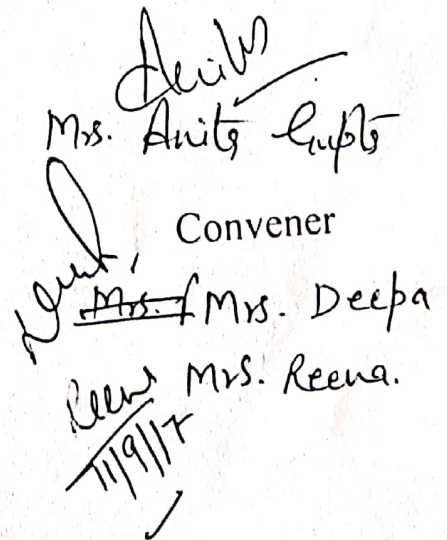 Mrs. Anita Gupta
Convener
Mrs. Mrs. Deepa
Reena Mrs. Reena.
11/9/17